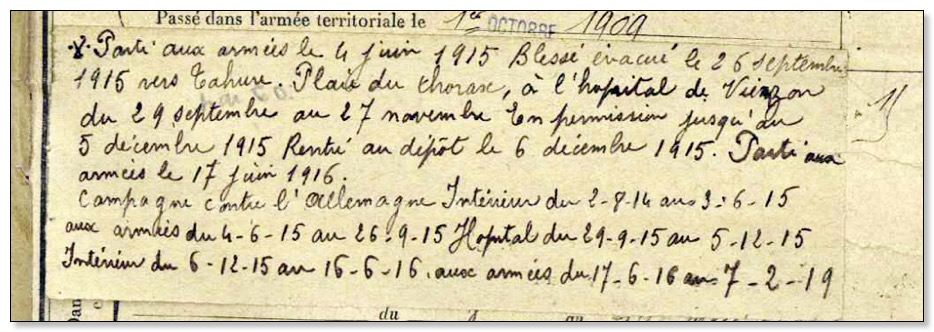 Passé dans l'armée territoriale le 1er OCTOBRE 1909
Parti aux armées le 4 juin 1915 Blessé évacué le 26 septembre
1915 vers Tahure. Plaie du thorax, à l'hopital de Vierzon
du 29 septembre au 27 novembre En permission jusqu'au
5 décembre 1915 Rentré au dépôt le 6 décembre 1915. Parti aux
armées le 17 juin 1916.
Campagne contre l'Allemagne Intérieur du 2-8-14 au 3-6-15
aux armées du 4-6-15 au 26-9-15 Hopital du 29-9-15 au 5-12-15
Intérieur du 6-12-15 au 16-6-16. aux armées du 17-6-16 au 7-2-19
Dan
du au